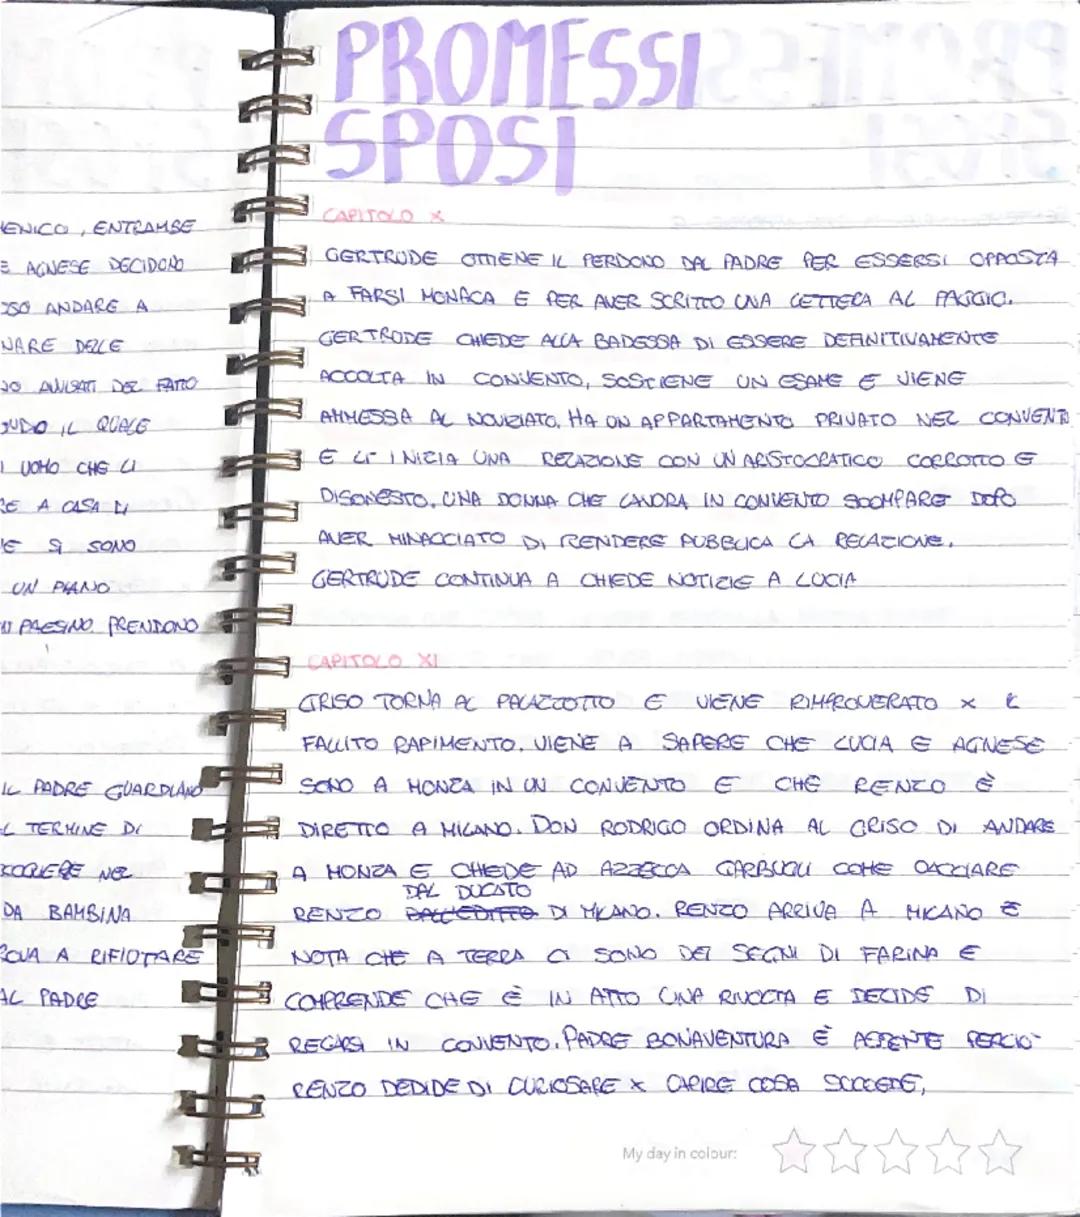 ENICO, ENTRAMBE
E AGNESE DECIDONO
OSO ANDARE A
NARE DELLE
NO AVVISATI DEL FATTO
IL QUALE
UOMO CHE LI
RE A CASA DI
E SI SONO
UN PIANO
PAESINO. PRENDONO
IL PADRE GUARDIANO
L TERMINE DI
NEL
DA BAMBINA
ROVA A RIFIUTARE
AL PADRE
PROMESSI
SPOSI
CAPITOLO X
GERTRUDE OTTIENE IL PERDONO DAL PADRE PER ESSERSI OPPOSTA
A FARSI MONACA E PER AVER SCRITTO UNA LETTERA AL PAGGIO.
GERTRUDE CHIEDE ALLA BADESSA DI ESSERE DEFINITIVAMENTE
ACCOLTA IN CONVENTO, SOSTIENE UN ESAME E VIENE
AMMESSA AL NOVIZIATO. HA UN APPARTAMENTO PRIVATO NEL CONVENTO
E LÌ INIZIA UNA RELAZIONE CON UN ARISTOCRATICO CORROTTO E
DISONESTO. UNA DONNA CHE LAVORA IN CONVENTO SCOMPARE DOPO
AVER MINACCIATO DI RENDERE PUBBLICA LA RELAZIONE.
GERTRUDE CONTINUA A CHIEDE NOTIZIE A LUCIA
CAPITOLO XI
GRISO TORNA AL PALAZZOTTO E VIENE RIMPROVERATO x IL
FALLITO RAPIMENTO. VIENE A SAPERE CHE LUCIA E AGNESE
SONO A MONZA IN UN CONVENTO E CHE RENZO È
DIRETTO A MILANO. DON RODRIGO ORDINA AL GRISO DI ANDARE
A MONZA E CHIEDE AD AZZECCA GARBUGLI COME CACCIARE
DAL DUCATO
RENZO DALL'EDITTO DI MILANO. RENZO ARRIVA A MILANO E
NOTA CHE A TERRA CI SONO DEI SEGNI DI FARINA E
COMPRENDE CHE È IN ATTO UNA RIVOLTA E DECIDE DI
REGARSI IN CONVENTO. PADRE BONAVENTURA È ASSENTE PERCIÒ
RENZO DEDIDE DI CURIOSARE x CAPIRE COSA SUCCEDE,
My day in colour: